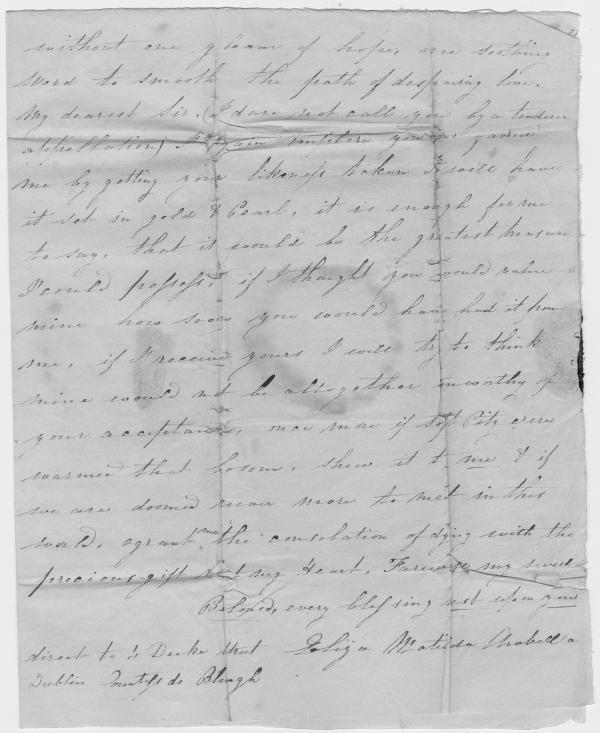 without one gleam of hope, one soothing
word to smooth the path of despairing love.
My dearest Sir, (I dare not call you by a tenderer
appellation) I again implore you
me by getting your likeness taken I will have
it set in gold & Pearl, it is enough for me
to say, that it would be the greatest treasure
I could possess, if I thought you would value
mine how soon you would have had it from
me, if I receive yours I will try to think
mine would not be altogether unworthy of
your acceptance, once more if soft Pity ever
warmed that bosom, shew it to me & if
we are doomed never more to meet in this
world, grant me the consolation of dying with the
precious gift at my Heart, Farewell my sweet
Beloved, every blessing rest upon you
direct to Duke Street Eliza Matilda Arabella
Dublin de